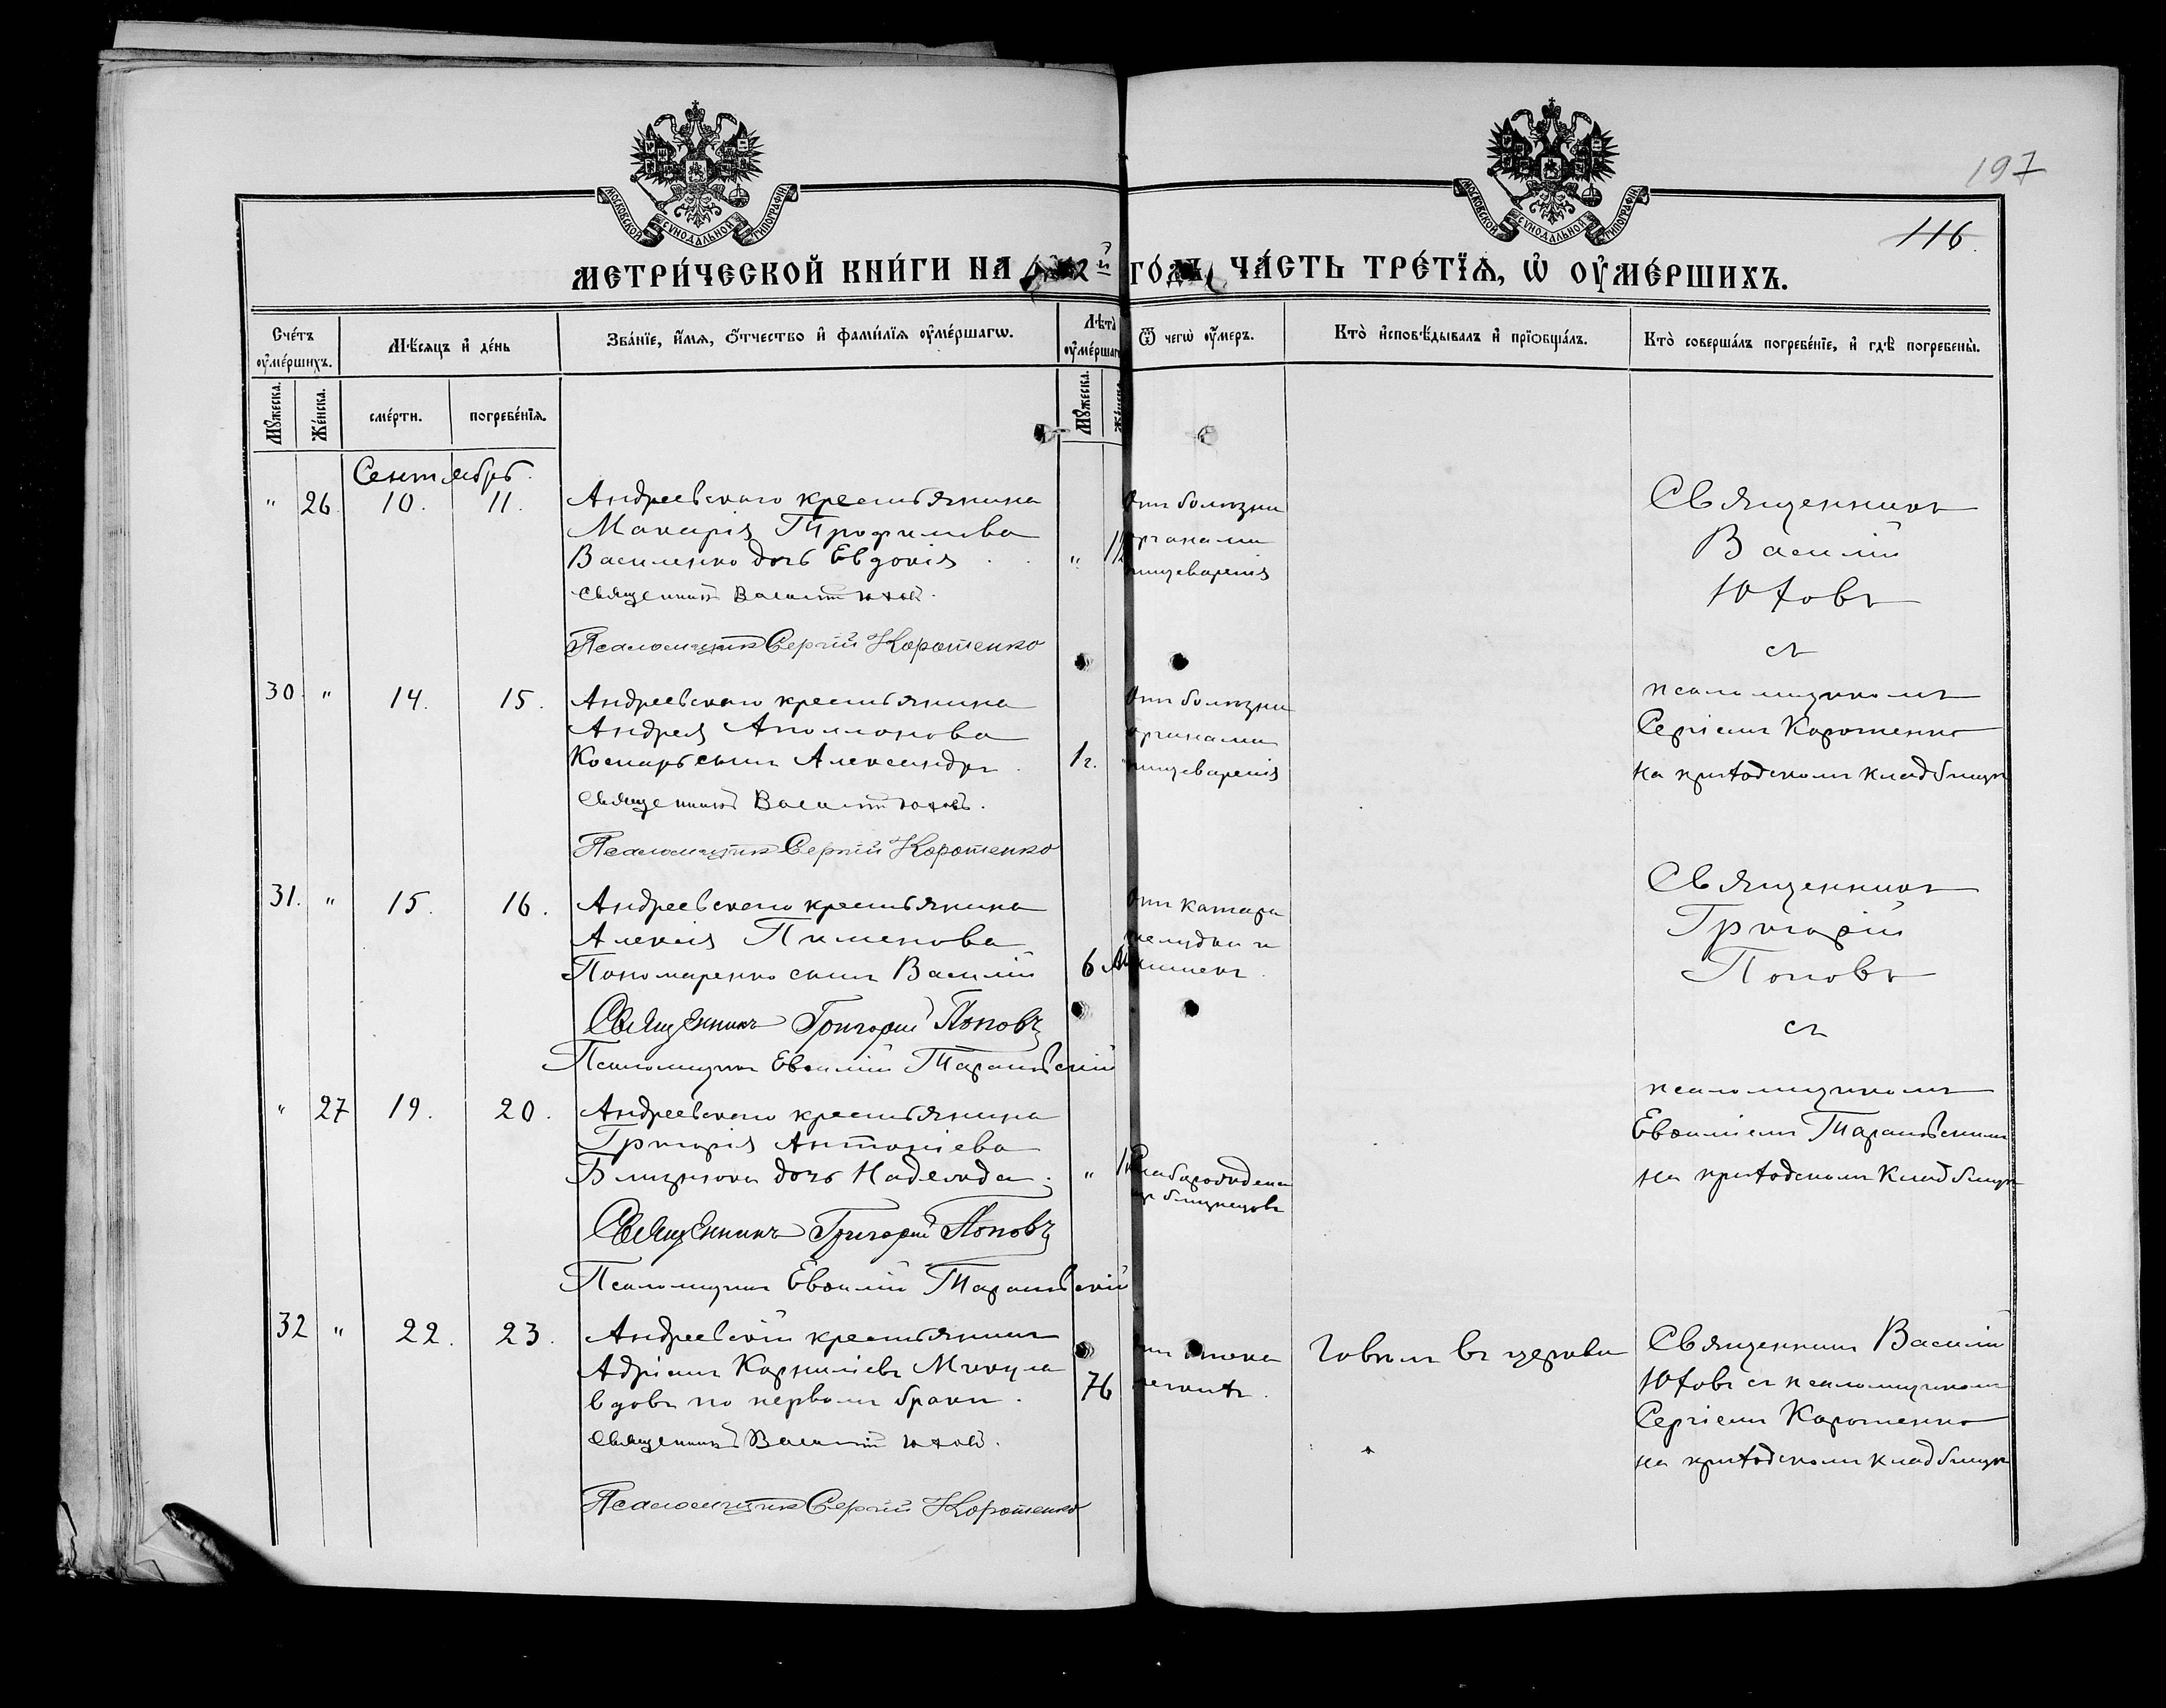 197
116.
МОСКОВСКОЙ СѴНОДАЛЬНОЙ ТИПОГРАФІИ
МОСКОВСКОЙ СѴНОДАЛЬНОЙ ТИПОГРАФІИ
МЕТРИ́ЧЕСКОЙ КНИ́ГИ НА 2й ГО́ДЪ, ЧА́СТЬ ТРЕ́ТЇѦ, Ѡ҆ ОУ҆МЕ́РШИХЪ.
Сче́тъ оу҆ме́ршихъ.
Мѣ́сяцъ и҆ де́нь
Зва́нїе, и҆́мя, ѻ҆́тчество и҆ фами́лїя оу҆ме́ршагѡ.
Лѣ́та оу҆ме́ршаг
Ѿ чегѡ̀ оу҆́меръ.
Кто̀ и҆сповѣ́дывалъ и҆ прїѡбща́лъ.
Кто̀ соверша́лъ погребе́нїе, и҆ гдѣ̀ погребены̀.
Мꙋ́жеска.
Же́нска.
сме́рти.
погребе́нїѧ.
Мꙋ́жеска.
Сентябрь.
" 26. 10. 11. Андреевскаго крестьянина
Макарія Трофимова
Василенко дочь Евдокія "
Священникъ Василій Юховъ.
Псаломщикъ Сергій Коротенко
отъ болѣзни
органами
пищеваренія
Священникъ
Василій
Юховъ
съ
псаломщикомъ
Сергіемъ Коротенко
на приходскомъ кладбищѣ
30. " 14. 15. Андреевскаго крестьянина
Андрея Аполлонова
Комарь сынъ Александръ 1г.
Священникъ Василій Юховъ.
Псаломщикъ Сергій Коротенко
отъ болѣзни
органами
пищеваренія
31. " 15. 16. Андреевскаго крестьянина
Алексія Пименова
Пономаренко сынъ Василій 6 м
Священникъ Григорій Поповъ
Псаломщикъ Евѳимій
отъ катара
желудка и
кишекъ.
Священникъ
Григорій
Поповъ
съ
псаломщикомъ
Евѳиміемъ
на приходскомъ кладбищѣ
" 27 19. 20. Андреевскаго крестьянина
Григорія Антоніева
Близнюка дочь Надежда. "
Священникъ Григорій Поповъ
Псаломщикъ Евѳимій
изъ близнецовъ
32 " 22. 23. Андреевскій крестьянинъ
Адріанъ Корниліевъ Микула
вдовъ по первомъ бракѣ. 76
Священникъ Василій Юховъ.
Псаломщикъ Сергій Коротенко
отъ отека
легкихъ.
Говѣлъ въ церкви
Священникъ Василій
Юховъ съ псаломщикомъ
Сергіемъ Коротенко
на приходскомъ кладбищѣ